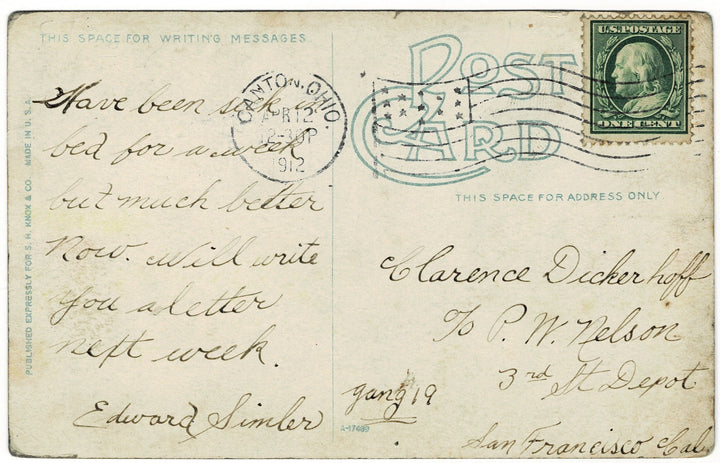 THIS SPACE FOR WRITING MESSAGES
POST
CARD
U.S.POSTAGE
ONE CENT
CANTON, OHIO.
APR 12
12-30P
1912
THIS SPACE FOR ADDRESS ONLY
PUBLISHED EXPRESSLY FOR S. H. KNOX & CO. MADE IN U.S.A.
Have been sick in
bed for a week
but much better
Now. Will write
you a letter
next week.
Edward Simler
Clarence Dickerhoff
c/o P. W. Nelson
3rd St Depot
gang 19
San Francisco Cal
A-17469